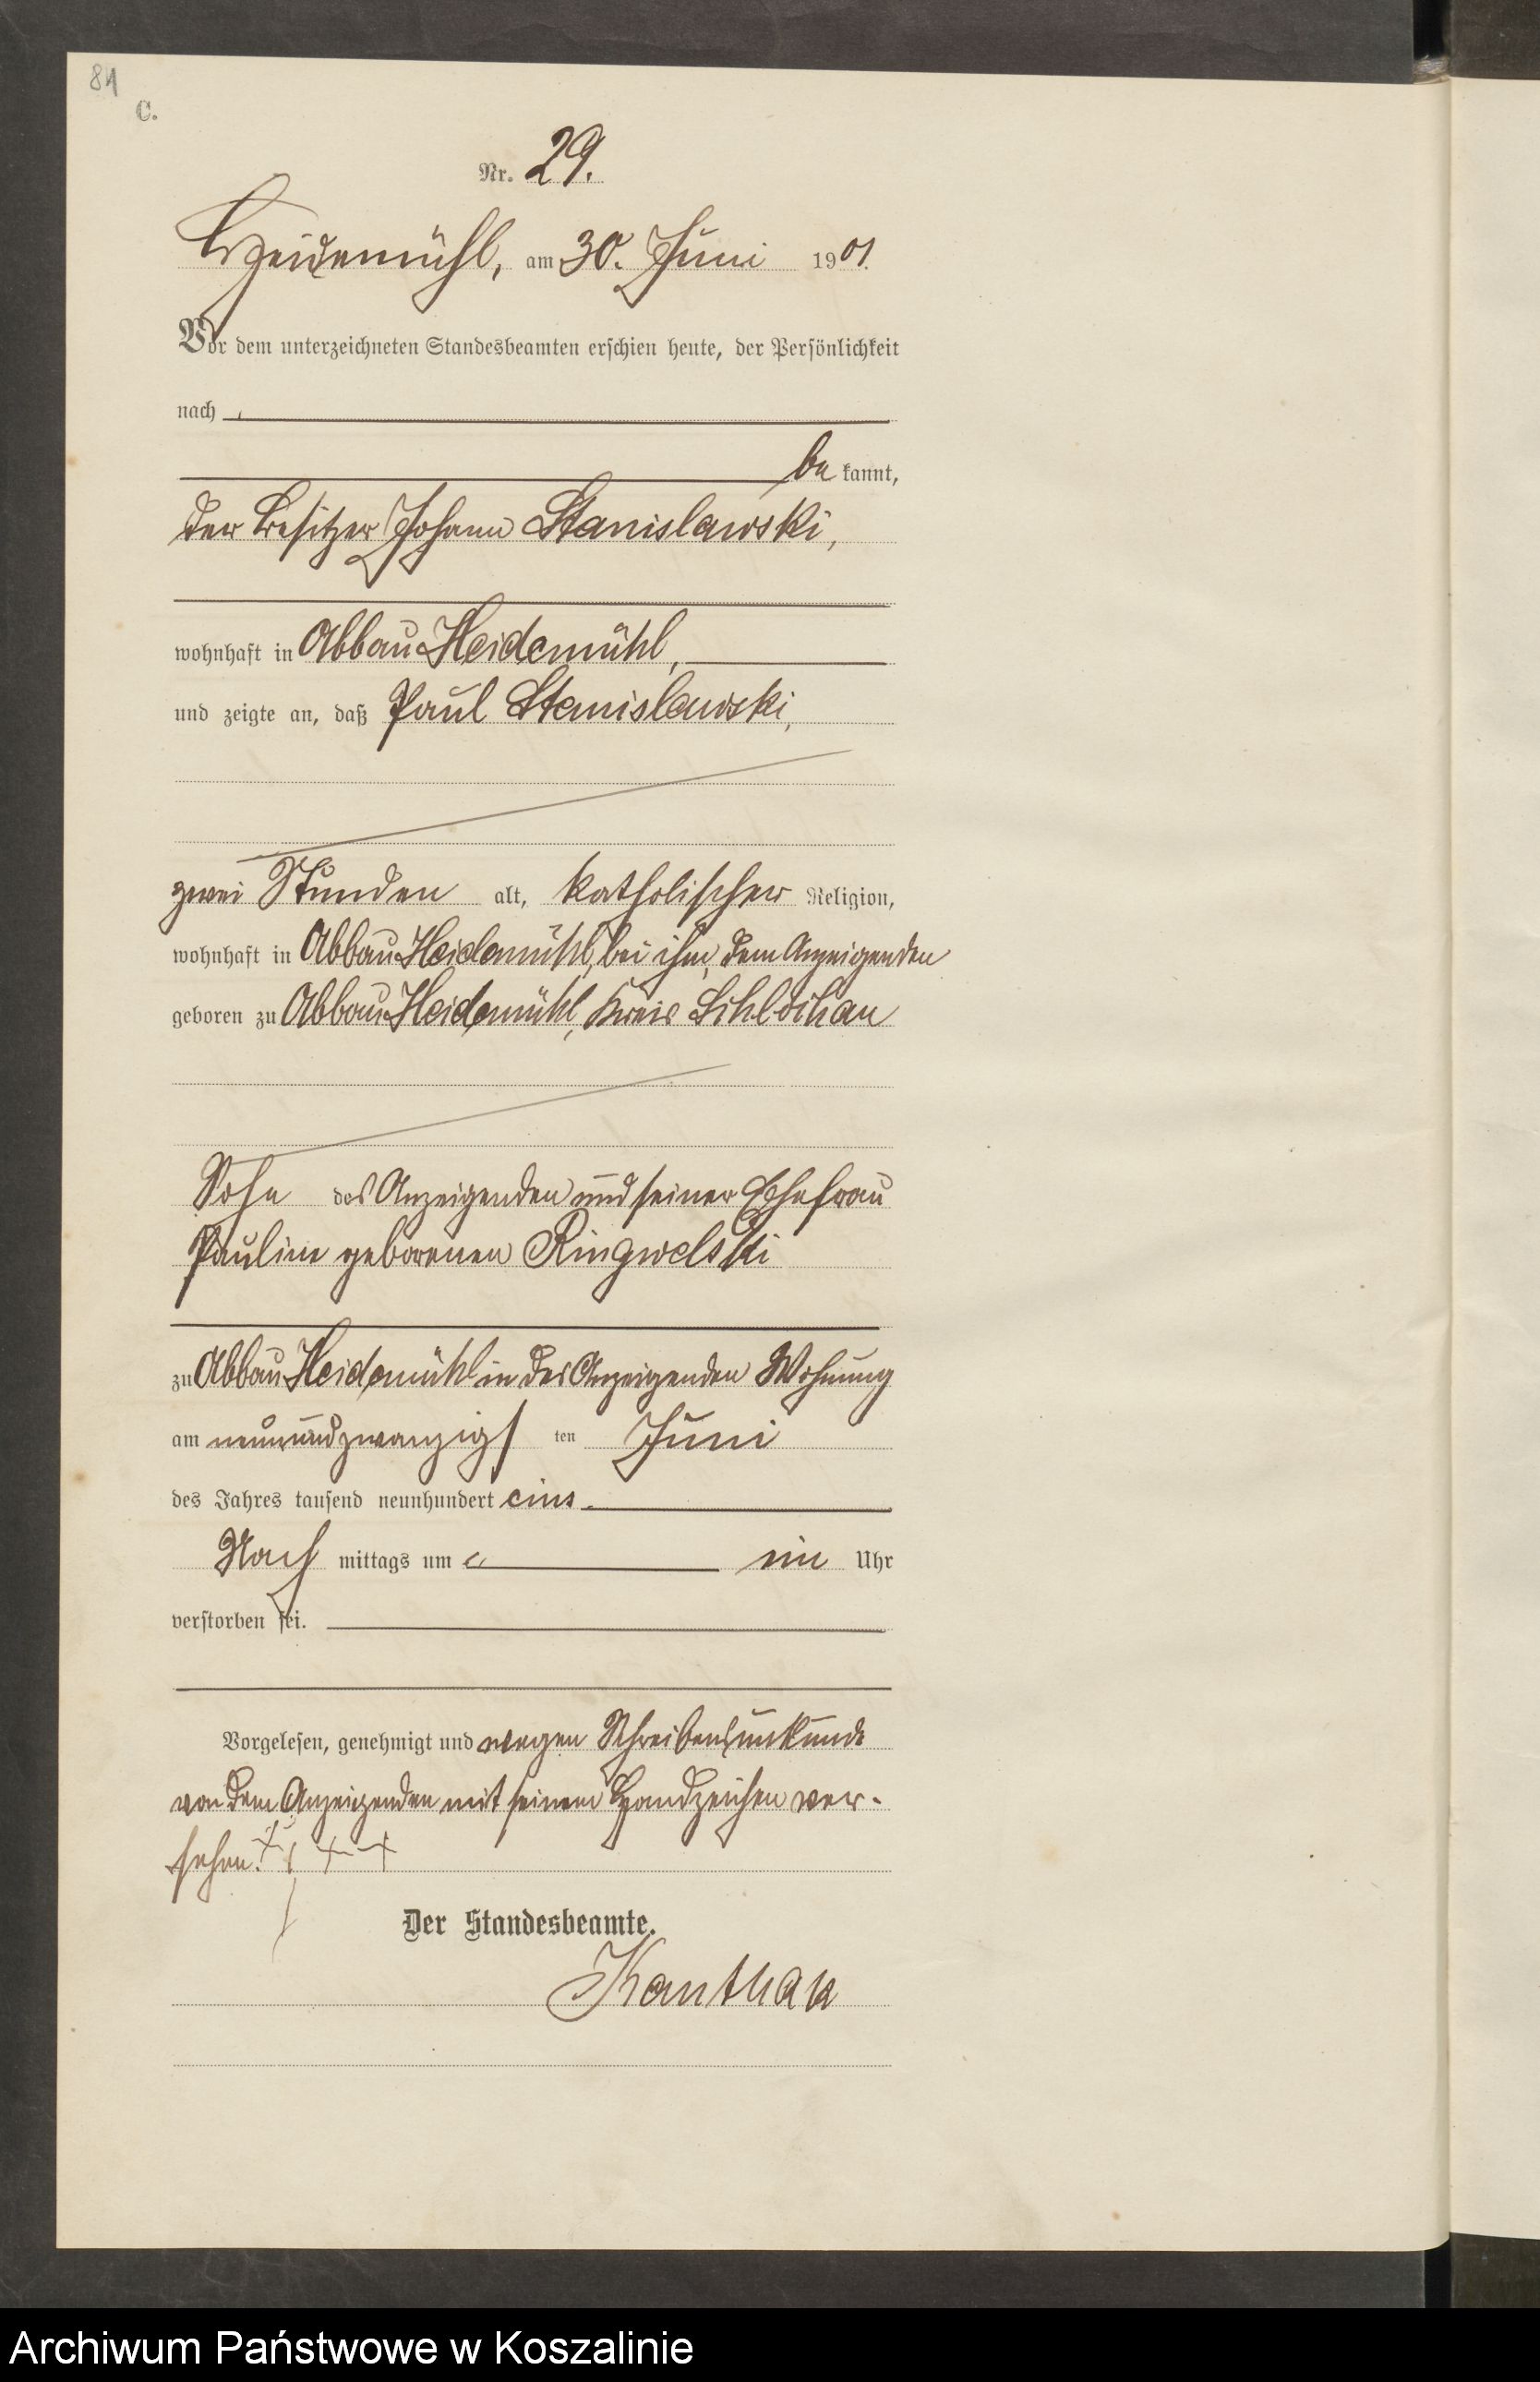 81
C.
Nr. 29.
Heidemühl, am 30. Juni 1901.
Vor dem unterzeichneten Standesbeamten erschien heute, der Persönlichkeit
nach
be kannt,
der Besitzer Johann Stanislawski,
wohnhaft in Abbau Heidemühl,
und zeigte an, daß Paul Stanislawski,
zwei Stunden alt, katholischer Religion,
wohnhaft in Abbau Heidemühl, bei ihm, dem Anzeigenden
geboren zu Abbau Heidemühl, Kreis Schlochau
Sohn des Anzeigenden und seiner Ehefrau
Pauline geborenen Ringwelski
zu Abbau Heidemühl in des Anzeigenden Wohnung
am neunundzwanzigs ten Juni
des Jahres tausend neunhundert eins
Nach mittags um ein Uhr
verstorben sei.
Vorgelesen, genehmigt und wegen Schreibensunkunde
von dem Anzeigenden mit seinem Handzeichen ver-
sehen. + + +
Der Standesbeamte.
Kanthak
Archiwum Państwowe w Koszalinie